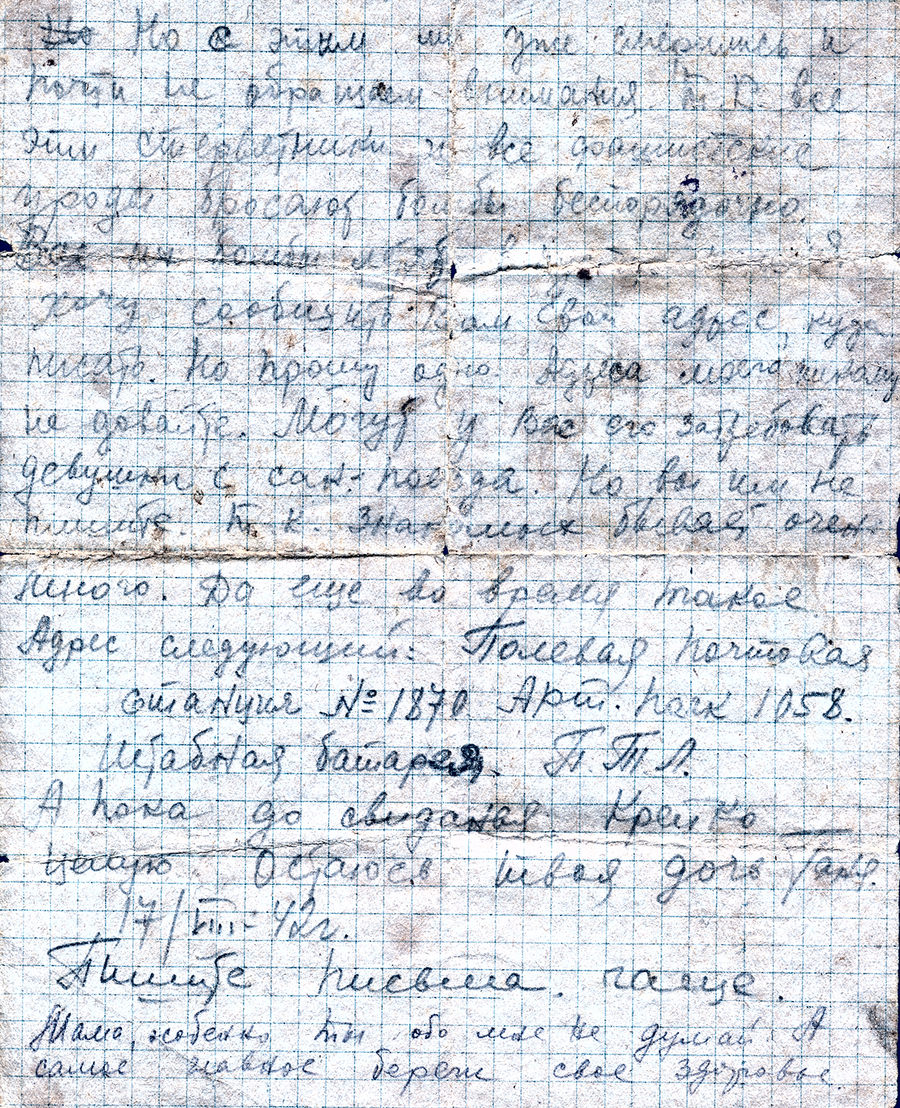 Но с этим мы уже смерились и
почти не обращаем внимания т.к. все
эти стервятники и все фашистские
уроды бросают бомбы беспорядочно.
бомбы
хочу сообщить Вам свой адрес, куда
писать. Но прошу одно. Адреса моего никому
не довайте. Могут у Вас его затребовать
девушки с сан-поезда. Но вы им не
пишите. Т.к. знакомых бывает очень
много. Да еще во время такое
Адрес следующий: Полевая почтовая
станция № 1870 Арт. полк 1058.
Штабная батарея. П.Т.Л.
А пока до свидания Крепко
целую. Остаюсь твоя дочь Таня.
17/VIII-42г.
Пишите письма чаще.
Мама, особенно ты обо мне не думай А
самое главное береги свое здоровье.